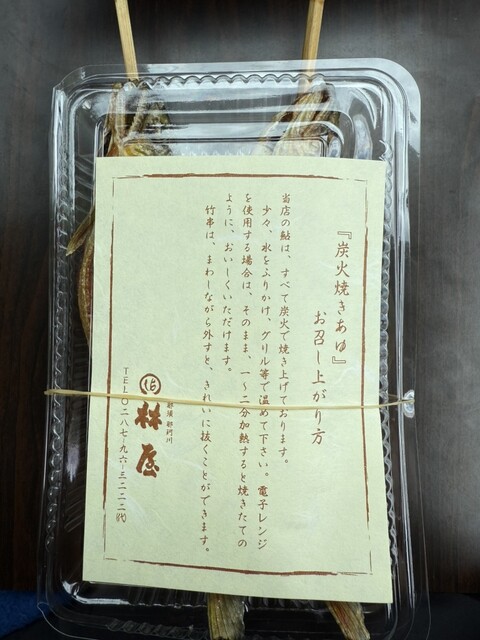 『炭火焼きあゆ』
お召し上がり方
当店の鮎は、すべて炭火で焼き上げております。
少々、水をふりかけ、グリル等で温めて下さい。電子レンジ
を使用する場合は、そのまま、一〜二分加熱すると焼きたての
ように、おいしくいただけます。
竹串は、まわしながら外すと、きれいに抜くことができます。
那須 那珂川
林屋
TEL〇二八七ー九六ー三二二二㈹